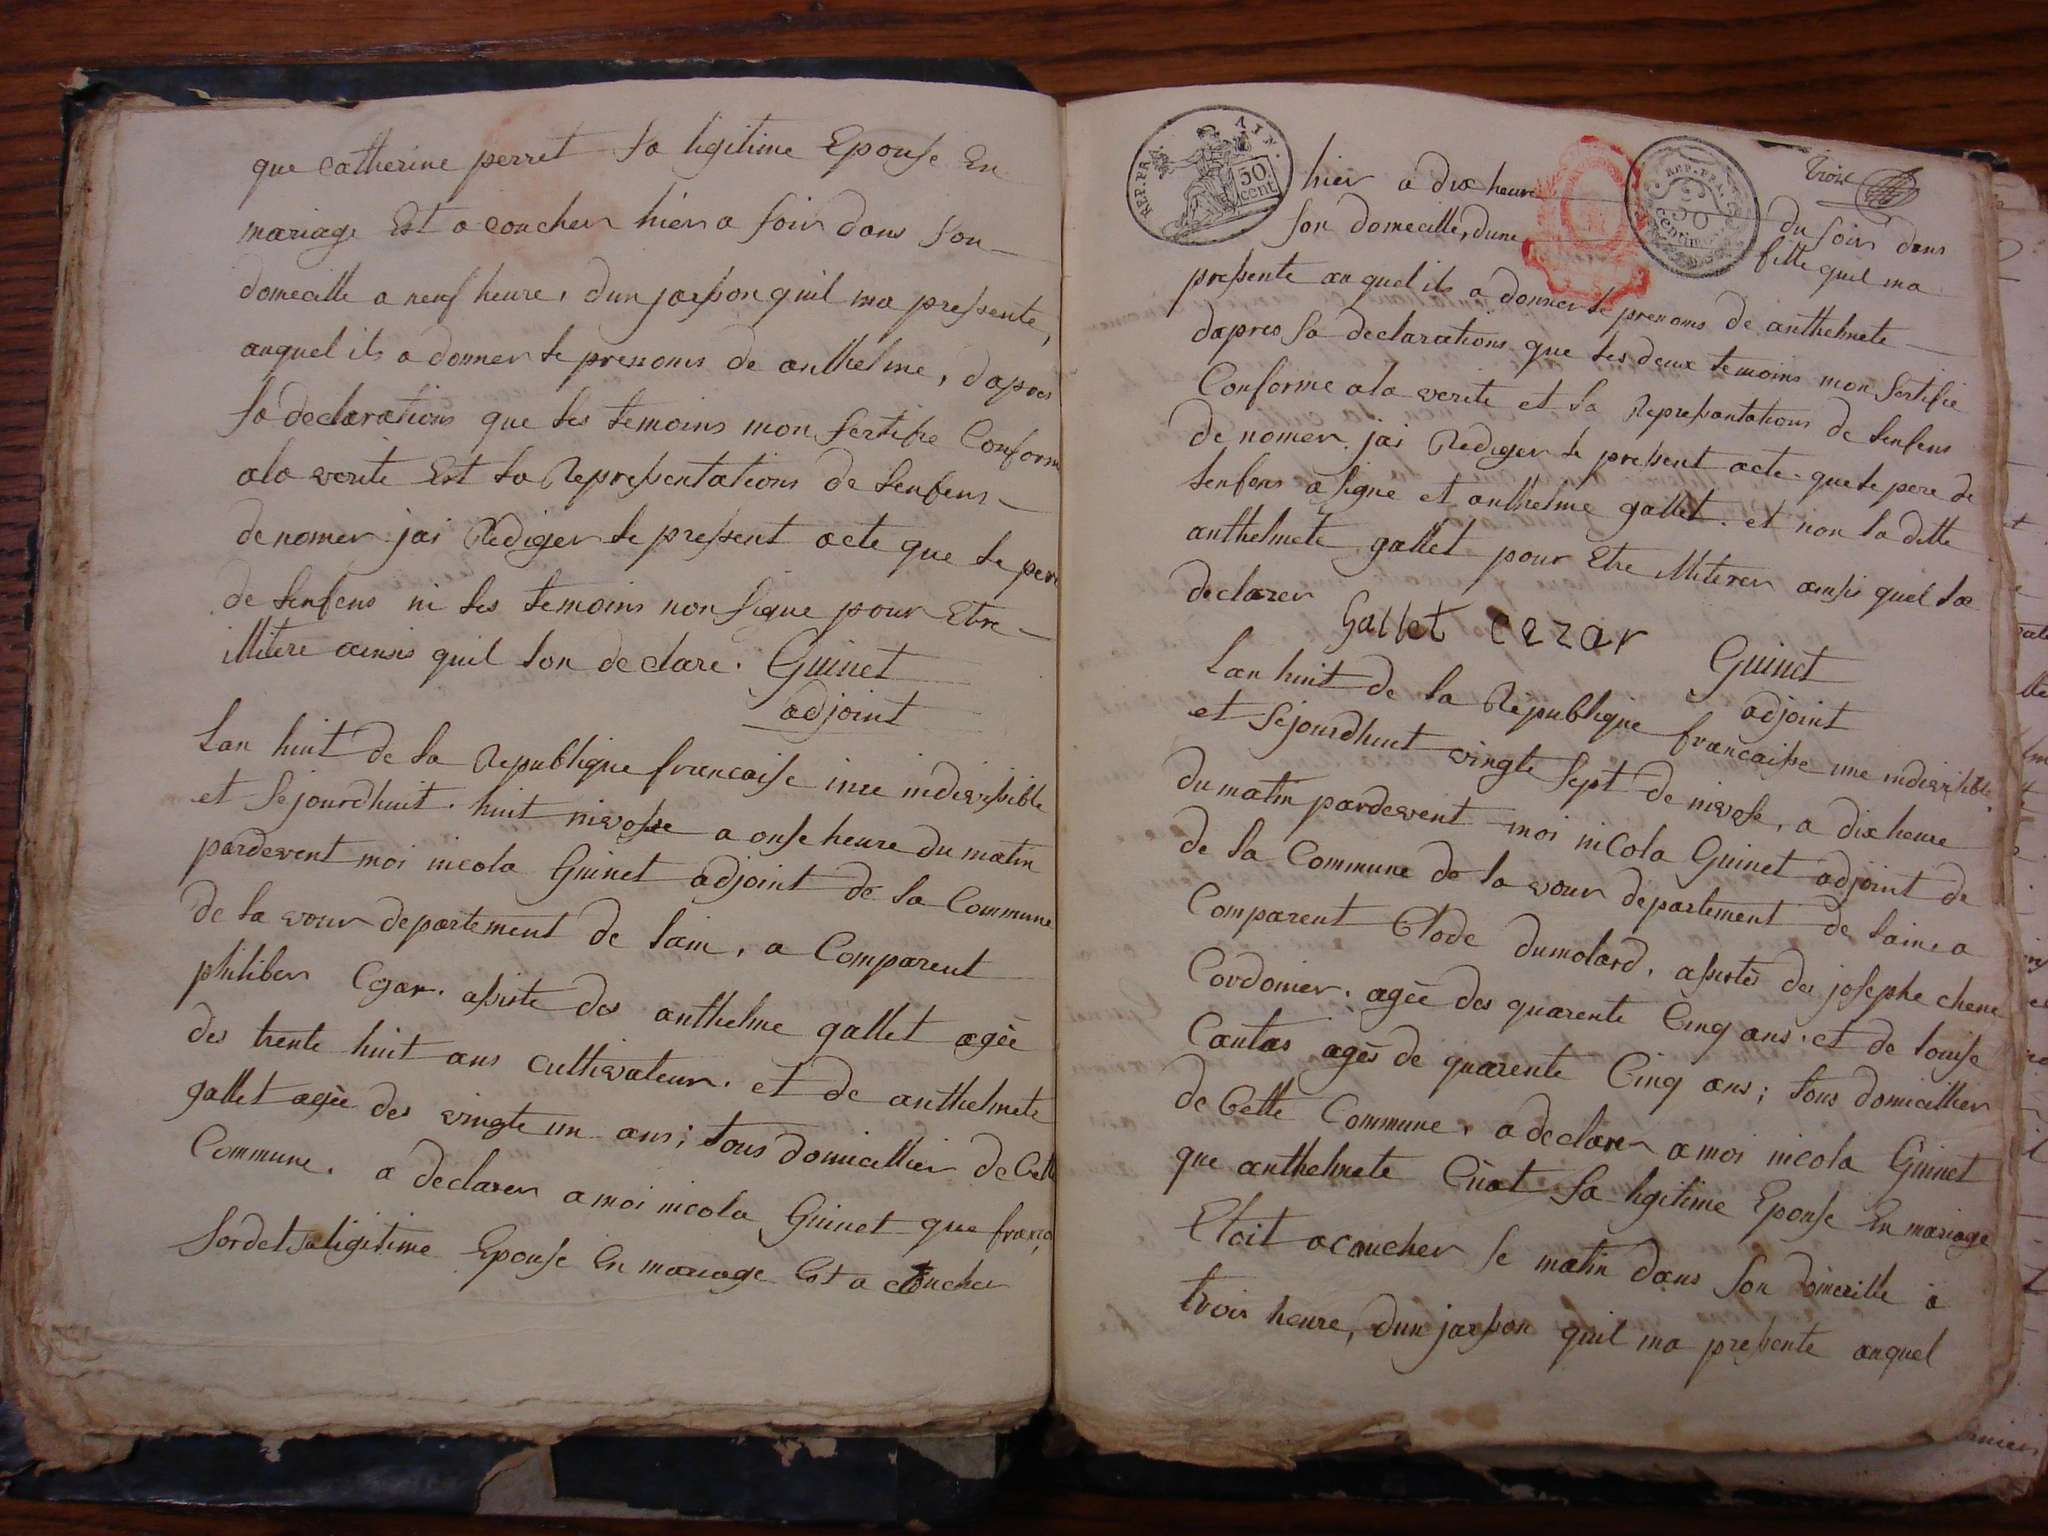 que catherine perret sa ligitime Epouse En
mariage Est a coucher hier a soir dans son
domecille a neuf heure, dun jarson quil ma pressente,
auquel ils a donner le prenoms de anthelme, dapres
sa declarations que les temoins mon sertifie Conforme
ala verite Est la Repressentations de lenfens
de nomer. jai Rediger le pressent acte que le pere
de lenfens ni les temoins non signe pour Etre
illitere ainsis quil lon declare. Guinet
adjoint
Lan huit de la Republique francaise une indivissible
et sejourdhuit. huit nivosse a onse heure du matin
pardevent moi nicola Guinet adjoint de la Commune
de la vour departement de lain, a Comparent
philiber Cezar. assiste des anthelme gallet agèe
des trente huit ans cultivateur. et de anthelmete
gallet agèe des vingte un ans; tous domicillier de Cette
Commune. a declarer a moi nicola Guinet que franco
Sordet sa ligitime Epouse En mariage Est a coucher
REP. FRA. AIN.
50 cent
REP. FRA.
50 centime
Troise
hier a dix heure du soir dans
son domecille, dune fille quil ma
pressente auquel ils a donner le prenoms de anthelmete
dapres sa declarations que les deux temoins mon sertifie
Conforme ala verite et la Repressantations de lenfens
de nomer. jai Rediger le pressent acte que le pere de
lenfens a signe et anthelme gallet. et non la ditte
anthelmete gallet pour Etre illiterer ainsis quel la
declarer
Gallet cezar Guinet
adjoint
Lan huit de la Republique francaisse une indivisible
et sejourdhuit vingte sept de nivose, a dix heure
du matin pardevent moi nicola Guinet adjoint de
de la Commune de la vour departement de laine a
Comparent Clode dumolard. assistès des josephe chene
Cordonier. agèe des quarente Cinq ans. et de louise
Cautas agès de quarente Cinq ans; tous domicillier
de Cette Commune. a declarer a moi nicola Guinet
que anthelmete Cuat sa ligitime Epouse En mariage
Etoit acoucher se matin dans son domecille a
trois heure, dun jarson quil ma pressente auquel